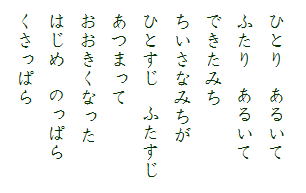 ひとり　あるいて
ふたり　あるいて
できたみち
ちいさなみちが
ひとすじ　ふたすじ
あつまって
おおきくなった
はじめ　のっぱら
くさっぱら